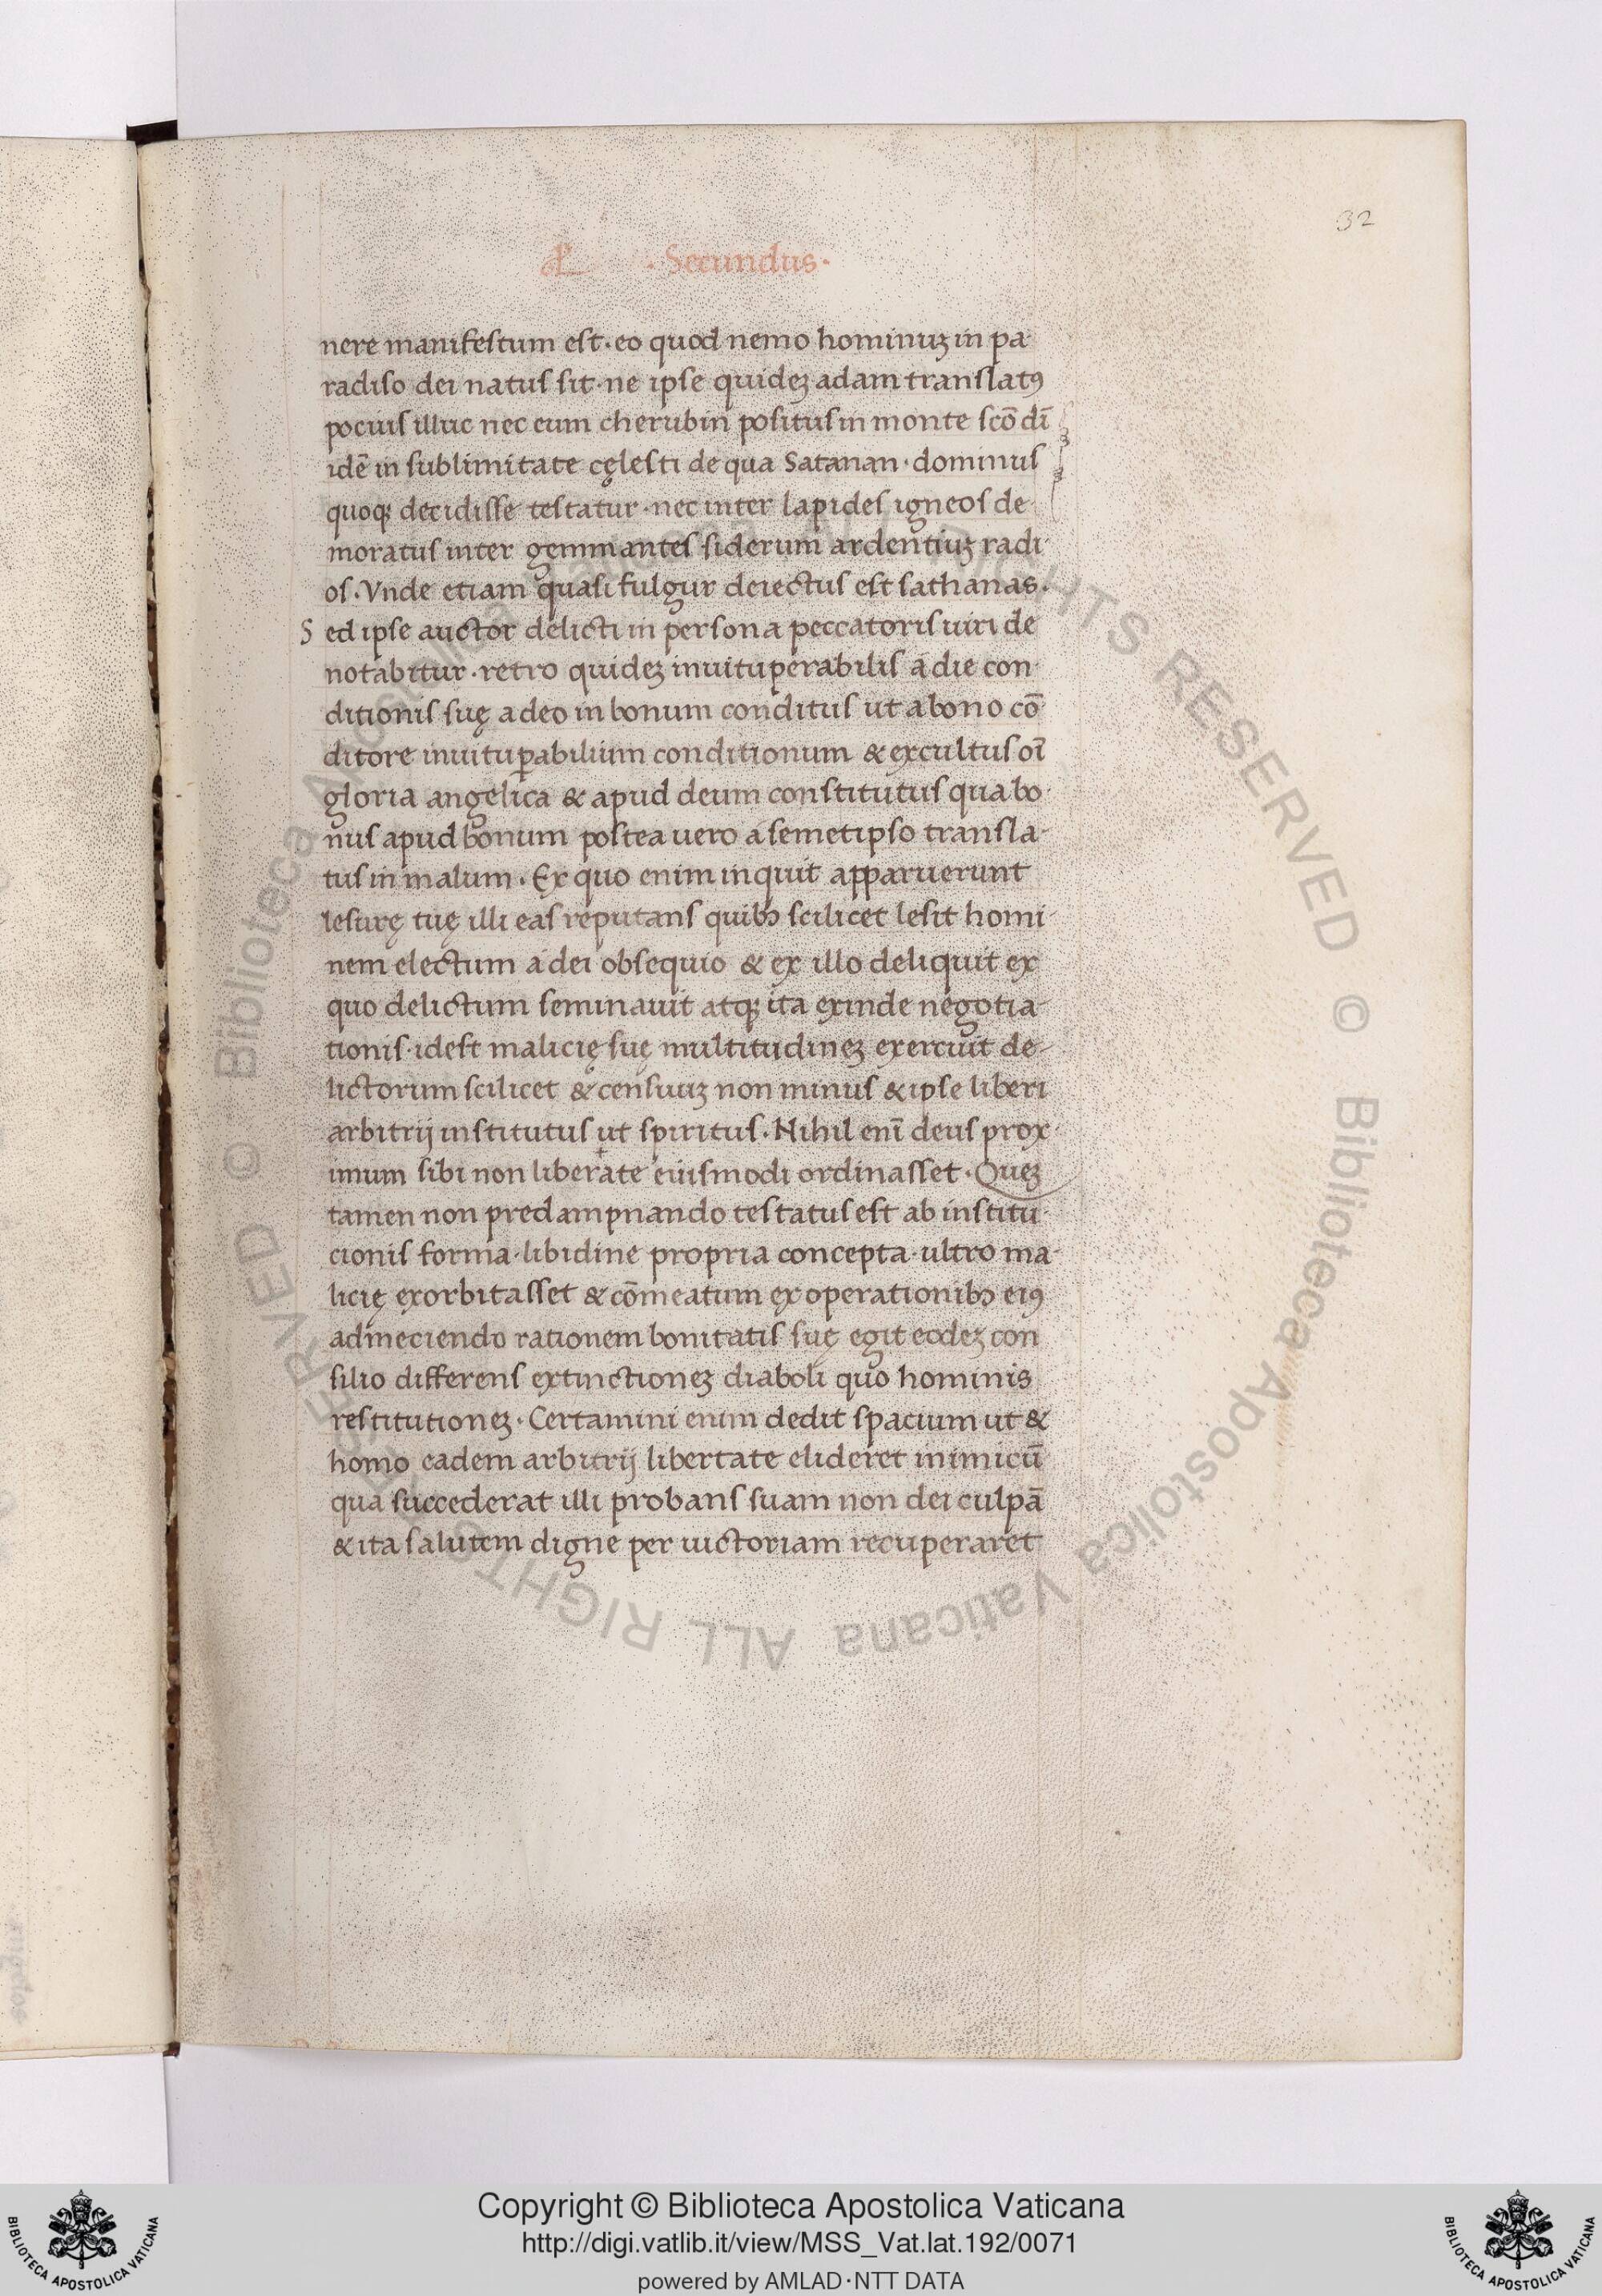 32
· Secundus ·
nere manifestum est · eo quod nemo hominuꝫ in pa
radiso dei natus sit · ne ipse quideꝫ adam translatꝰ
pocius illuc nec cum cherubin positus in monte scō dī
idē in sublimitate cęlesti de qua Satanan · dominus
quoqꝫ decidisse testatur · nec inter lapides igneos de
moratus inter gemmantes siderum ardentiuꝫ radi
os · Vnde etiam quasi fulgur deiectus est sathanas ·
Sed ipse auctor delicti in persona peccatoris uiri de
notabitur · retro quideꝫ inuituperabilis a die con
ditionis suę a deo in bonum conditus ut a bono cō
ditore inuituꝑabilium conditionum & excultus oī
gloria angelica & apud deum constitutus qua bo
nus apud bonum postea uero a semetipso transla-
tus in malum · Ex quo enim inquit apparuerunt
lesurę tuę illi eas reputans quibꝫ scilicet lesit homi
nem electum a dei obsequio & ex illo deliquit ex
quo delictum seminauit atqꝫ ita exinde negotia
tionis · idest malicię suę multitudineꝫ exercuit de-
lictorum scilicet & censuuꝫ non minus & ipse liberi
arbitrij institutus ut spiritus · Nihil enī deus prox
imum sibi non liberate eiusmodi ordinasset · Queꝫ
tamen non predampnando testatus est ab institu
cionis forma · libidine propria concepta · ultro ma
licię exorbitasset & cōmeatum ex operationibꝫ eiꝰ
admeciendo rationem bonitatis suę egit eodeꝫ con
silio differens extinctioneꝫ diaboli quo hominis
restitutioneꝫ · Certamini enim dedit spacium ut &
homo eadem arbitrij libertate elideret inimicū
qua succederat illi probans suam non dei culpā
& ita salutem digne per uictoriam recuperaret
© Biblioteca Apostolica Vaticana ALL RIGHTS RESERVED © Biblioteca Apostolica Vaticana ALL RIGHTS RESERVED
Copyright © Biblioteca Apostolica Vaticana
http://digi.vatlib.it/view/MSS_Vat.lat.192/0071
powered by AMLAD·NTT DATA
BIBLIOTECA APOSTOLICA VATICANA
BIBLIOTECA APOSTOLICA VATICANA